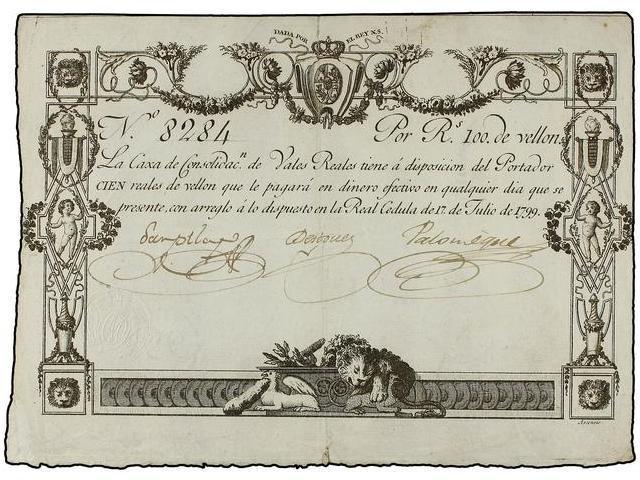 DADA POR EL REY N.S.
N.º 8284 Por R.s 100. de vellon.
La Caxa de Consolidac.n de Vales Reales tiene á disposicion del Portador
CIEN reales de vellon que le pagará en dinero efectivo en qualquier dia que se
presente, con arreglo á lo dispuesto en la Real Cédula de 17. de Julio de 1799.
Palomeque